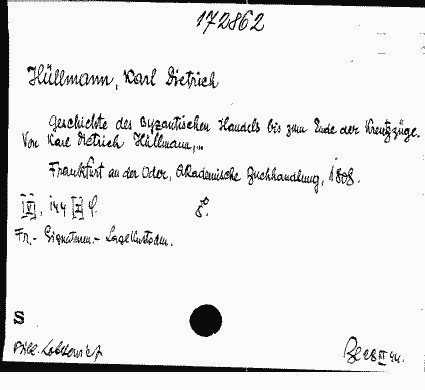 172862
Hüllmann, Karl Dietrich
Geschichte des Byzantischen Handels bis zum Ende der Kreutzzüge.
Von Karl Dietrich Hüllmann,...
Frankfurt an der Oder, Akademische Buchhandlung, 1808.
[VI], 144 [2] S. 8°.
Fr.- Signaturen.- Lagekustoden.
S